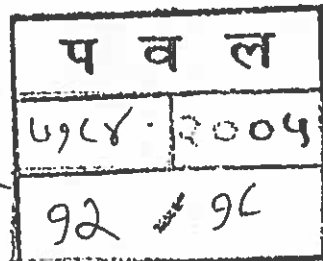 प व ल
७१८४ २००५
१२ / १८